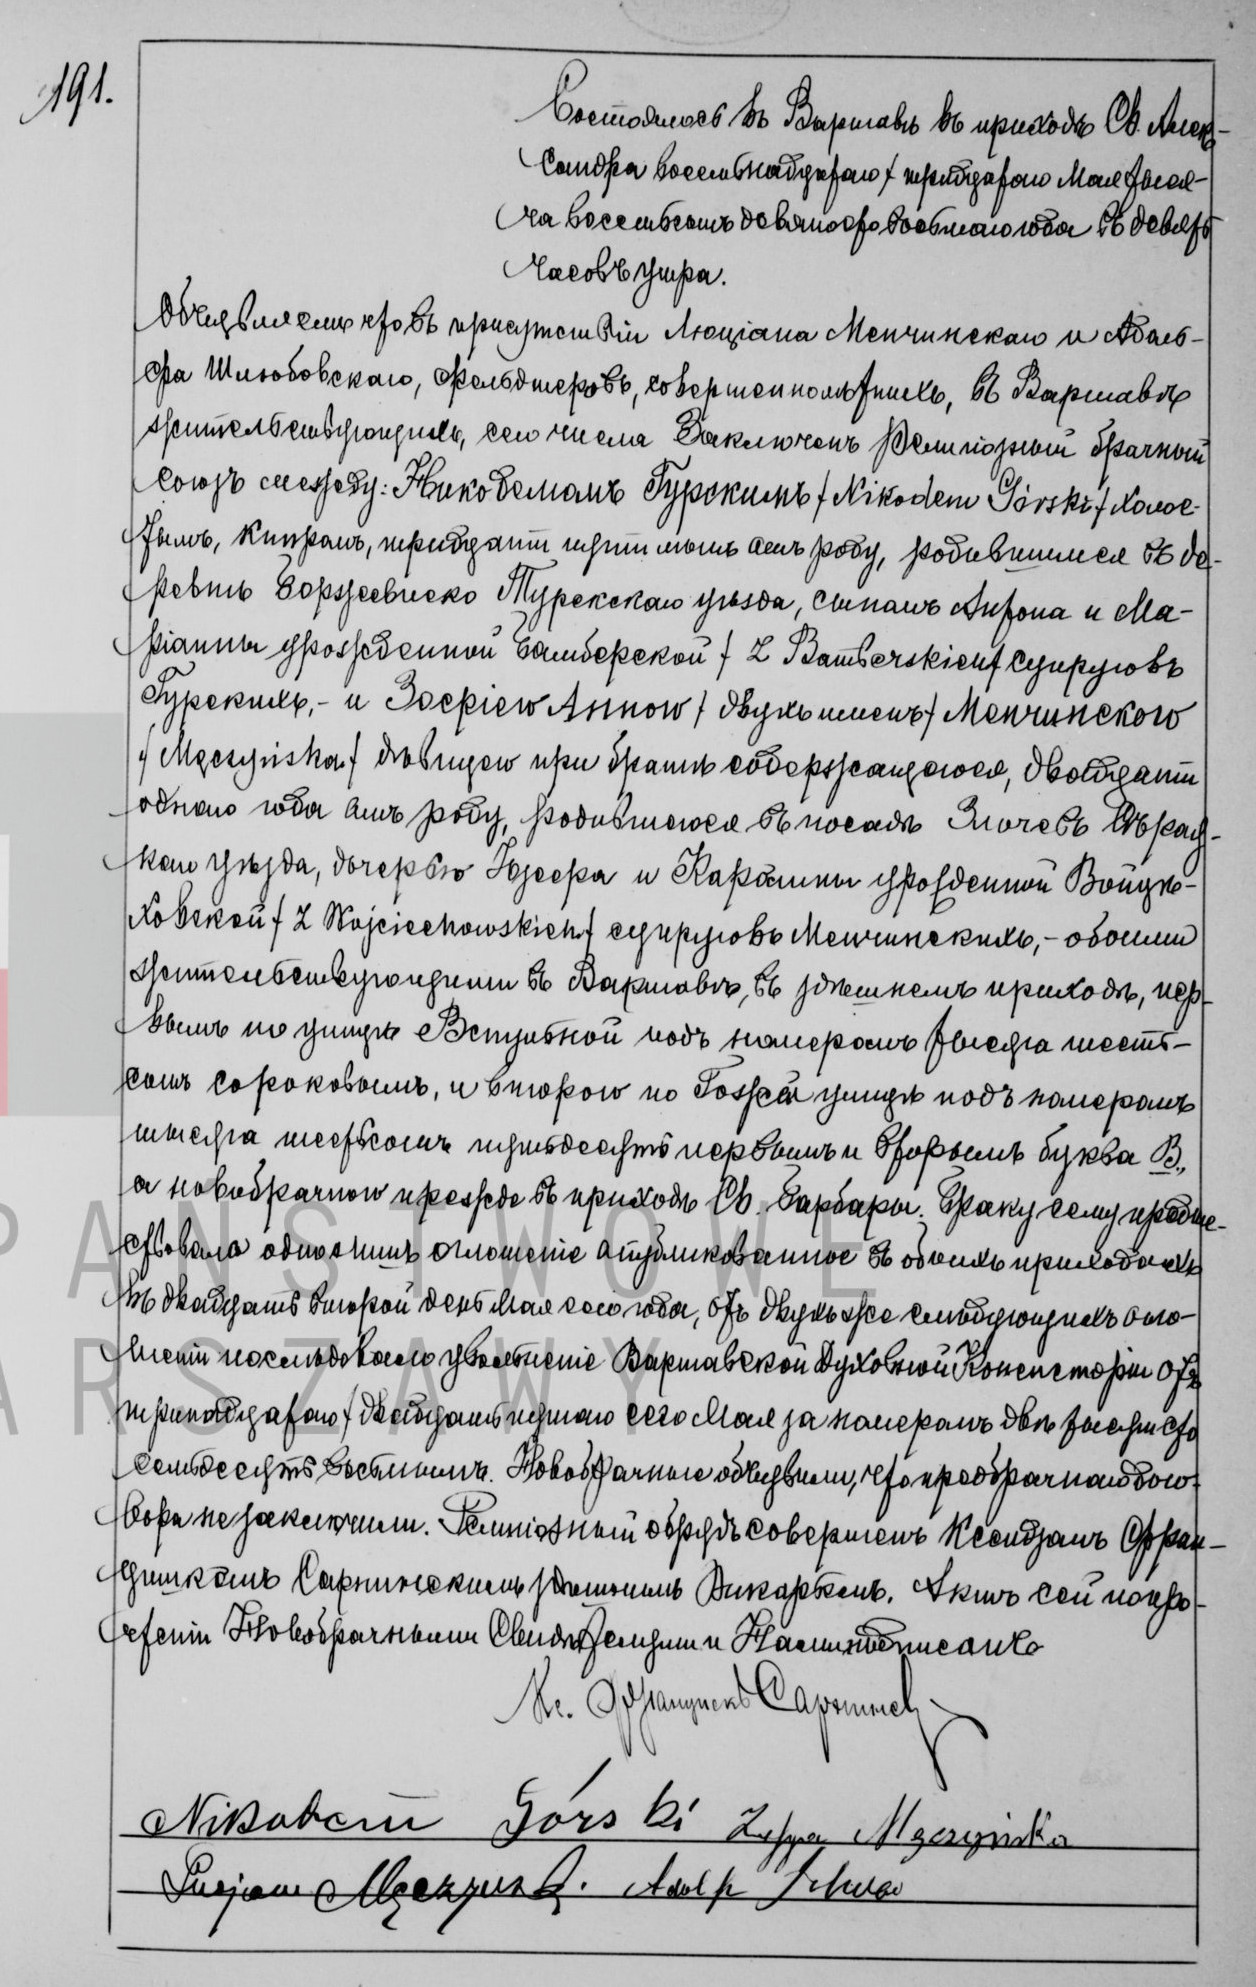 191.
Состоялось въ Варшавѣ въ приходѣ Св. Алек-
сандра восемнадцатаго / тридцатаго Мая тыся-
ча восемьсотъ девяносто восьмаго года въ девять
часовъ утра.
Объявляемъ что, въ присутствіи Люціана Менчинскаго и Адоль-
фа Шлюбовскаго, фельдшеровъ, совершеннолѣтнихъ, въ Варшавѣ
жительствующихъ, сего числа заключенъ религіозный брачный
союзъ между: Никодемомъ Гурскимъ / Nikodem Górski / холос-
тымъ, тридцати пяти лѣтъ отъ роду, родившимся въ де-
ревнѣ Турекскаго уѣзда, сыномъ Антона и Ма-
ріанны урожденной Бамберской / z Bamberskich / супруговъ
Гурскихъ, - и Зофіею Анною / двухъ именъ / Менчинскою
/ Męczyńska / дѣвицею при братѣ содержащеюся, двадцати
одного года отъ роду, родившеюся въ посадѣ Злочевъ Сѣрадз-
каго уѣзда, дочерью Іозефа и Каролины урожденной Войцѣ-
ховской / z Wojciechowskich / супруговъ Менчинскихъ, - обоими
жительствующими въ Варшавѣ, въ здѣшнемъ приходѣ, пер-
вымъ по улицѣ подъ номеромъ тысяча шесть-
сотъ сороковымъ, и второю по Гожей улицѣ подъ номеромъ
тысяча шестьсотъ пятьдесятъ первымъ и вторымъ буква В.,
а новобрачною прежде въ приходѣ Св. Барбары. Браку сему предше-
ствовало одно оглашеніе опубликованное въ обоихъ приходахъ
въ двадцать второй день Мая сего года, отъ двухъ же слѣдующихъ огло-
шеній послѣдовало увольненіе Варшавской Духовной Консисторіи отъ
тринадцатаго / двадцать пятаго сего Мая за номеромъ двѣ тысячи сто
семьдесятъ восьмымъ. Новобрачные объявили, что предбрачнаго дого-
вора не заключили. Религіозный обрядъ совершенъ Ксендзомъ Фран-
цишкомъ здѣшнимъ Викаріемъ. Актъ сей по про-
чтеніи Новобрачными Свидѣтелями и Нами подписанъ
Кс. Францискъ
Nikodem Górski Zofja Męczyńska
Lucjan Męczyński. Adolf